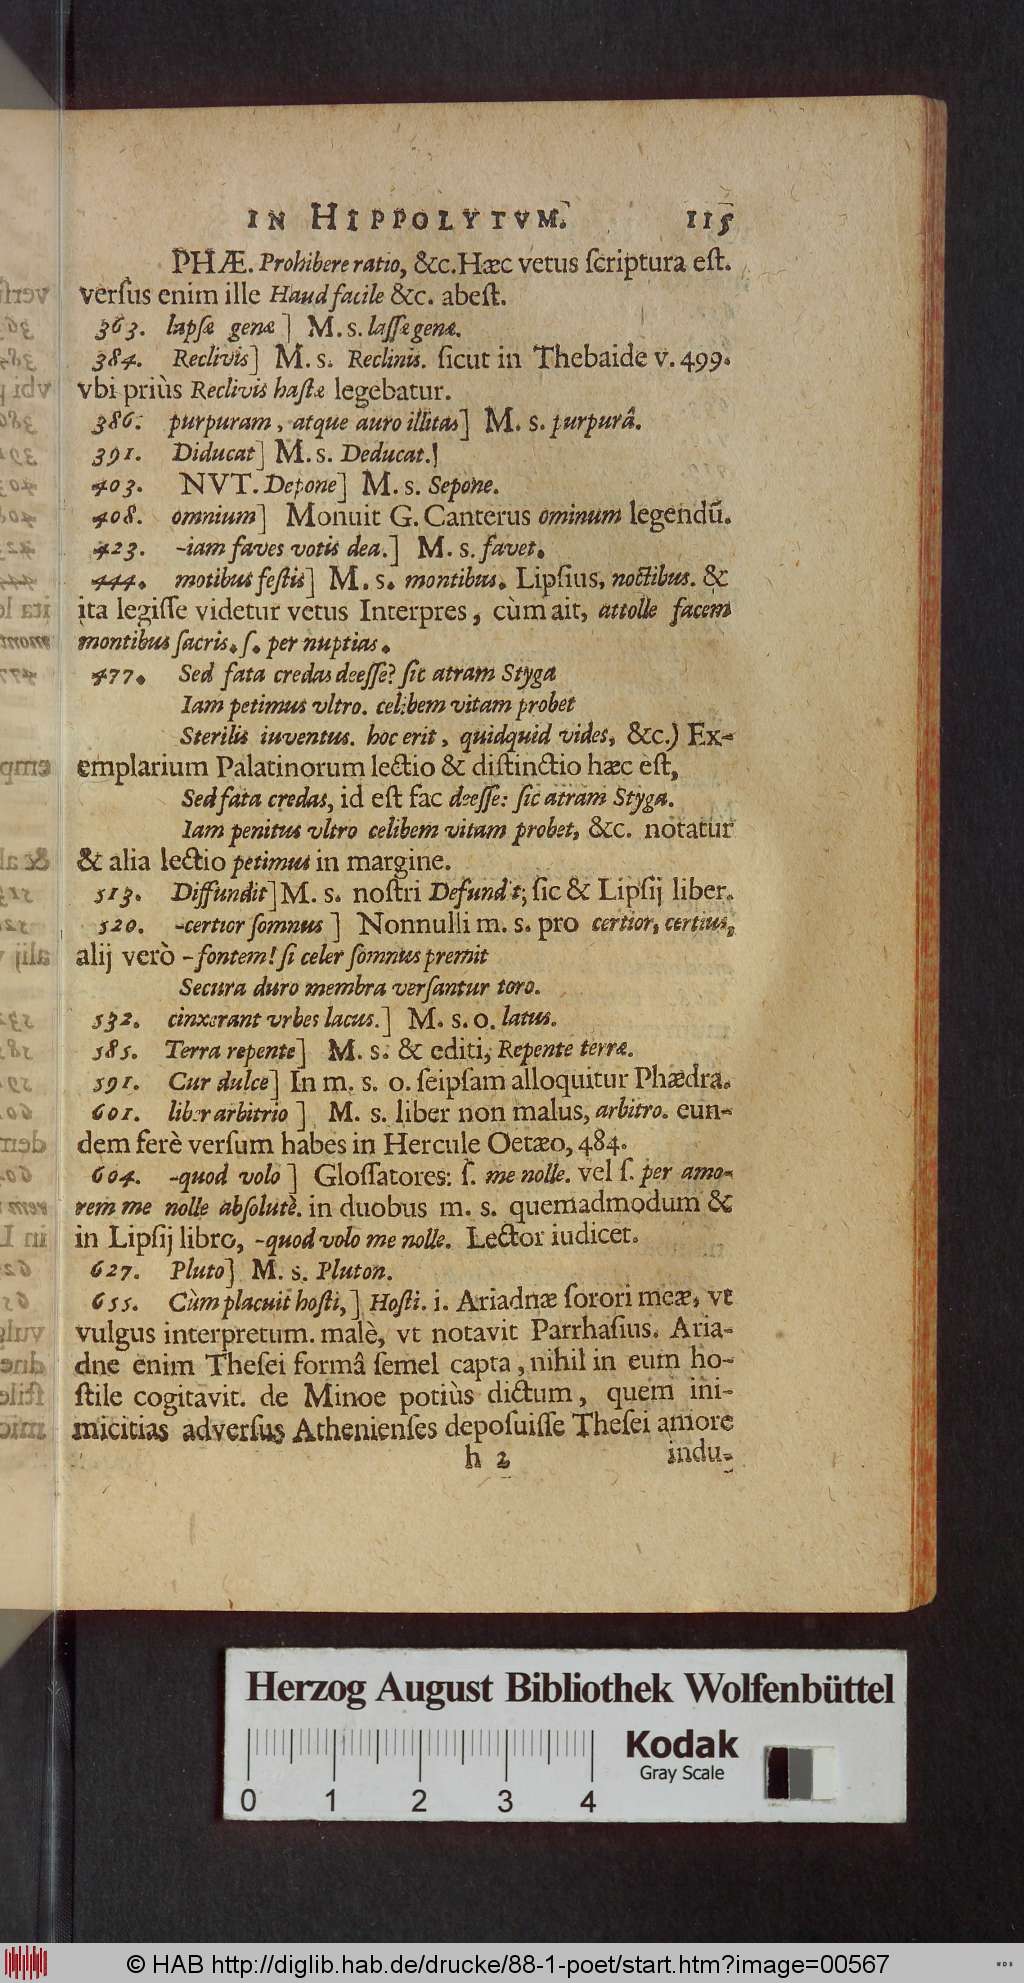 IN HIPPOLYTVM. 115
PHÆ. Prohibere ratio, &c. Hæc vetus ſcriptura eſt.
verſus enim ille Haud facile &c. abeſt.
363. lapſæ genæ] M. s. laſſæ genæ.
384. Reclivis] M. s. Reclinis. ſicut in Thebaide v. 499.
vbi priùs Reclivis haſtæ legebatur.
386. purpuram, atque auro illitas] M. s. purpurâ.
391. Diducat] M. s. Deducat.
403. NVT. Depone] M. s. Sepone.
408. omnium] Monuit G. Canterus ominum legendũ.
423. -iam faves votis dea.] M. s. favet.
444. motibus feſtis] M. s. montibus. Lipſius, noctibus. &
ita legiſſe videtur vetus Interpres, cùm ait, attolle facem
montibus ſacris. ſ. per nuptias.
477. Sed fata credas deeſſe? ſic atram Styga
Iam petimus vltro. celibem vitam probet
Sterilis iuventus. hoc erit, quidquid vides, &c.) Ex-
emplarium Palatinorum lectio & diſtinctio hæc eſt,
Sed fata credas, id eſt fac deeſſe: ſic atram Styga.
Iam penitus vltro celibem vitam probet, &c. notatur
& alia lectio petimus in margine.
513. Diffundit] M. s. noſtri Defundit; ſic & Lipſij liber.
520. -certior ſomnus] Nonnulli m. s. pro certior, certius,
alij verò -fontem! ſi celer ſomnus premit
Secura duro membra verſantur toro.
532. cinxerant vrbes lacus.] M. s. o. latus.
585. Terra repente] M. s. & editi, Repente terræ.
591. Cur dulce] In m. s. o. ſeipſam alloquitur Phædra.
601. liber arbitrio] M. s. liber non malus, arbitro. eun-
dem ferè verſum habes in Hercule Oetæo, 484.
604. -quod volo] Gloſſatores: ſ. me nolle. vel ſ. per amo-
rem me nolle abſolutè. in duobus m. s. quemadmodum &
in Lipſij libro, -quod volo me nolle. Lector iudicet.
627. Pluto] M. s. Pluton.
655. Cùm placuit hoſti,] Hoſti. i. Ariadnæ ſorori meæ, vt
vulgus interpretum. malè, vt notavit Parrhaſius. Aria-
dne enim Theſei formâ ſemel capta, nihil in eum ho-
ſtile cogitavit. de Minoe potiùs dictum, quem ini-
micitias adverſus Athenienſes depoſuiſſe Theſei amore
h 2 indu-
Herzog August Bibliothek Wolfenbüttel
Kodak
Gray Scale
0 1 2 3 4
© HAB http://diglib.hab.de/drucke/88-1-poet/start.htm?image=00567